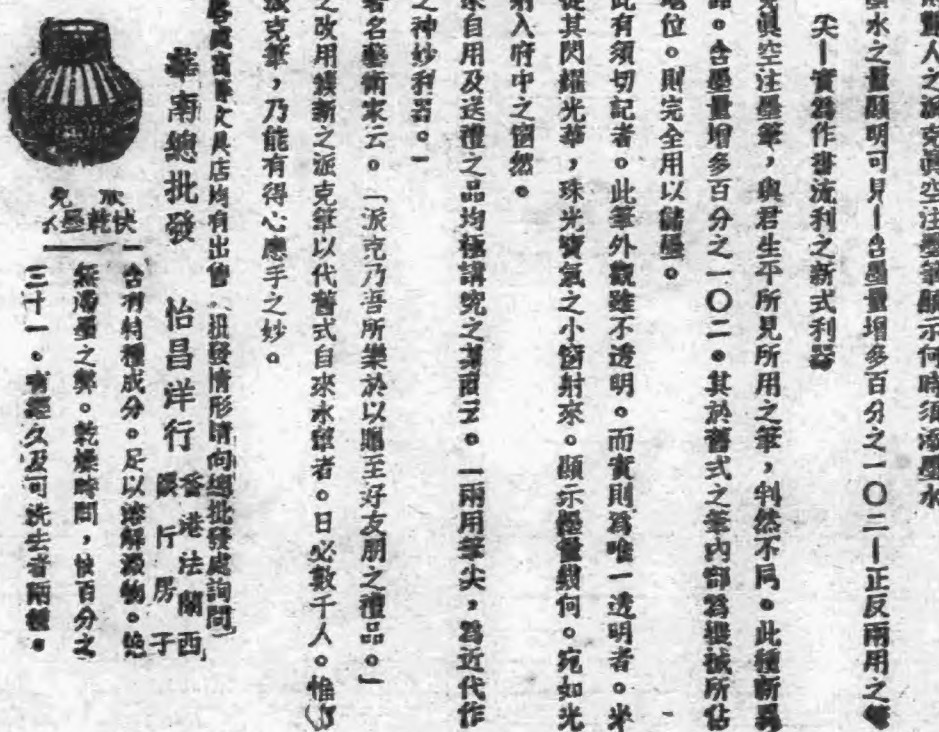 人之派克眞空注墨筆顯示何時須添墨水
墨水之量顯明可見—含墨量增多百分之一〇二—正反兩用之筆
尖—實爲作書流利之新式利器
眞空注墨筆，與君生平所見所用之筆，判然不同。此種新異
。含墨量增多百分之一〇二。其於舊式之筆內部爲機械所佔
地位。則完全用以儲墨。
此有須切記者。此筆外觀雖不透明。而實則爲唯一透明者。光
從其閃耀光華，珠光寶氣之小窗射來。顯示墨量幾何。宛如光
射入府中之窗然。
來自用及送禮之品均極講究之
一兩用筆尖，爲近代作
之神妙利器。」
著名藝術家云。「派克乃吾所樂於以贈至好友朋之禮品。」
之改用簇新之派克筆以代舊式自來水筆者。日必數千人。惟
派克筆，乃能有得心應手之妙。
文具店均有出售（批發情形請向總批發處詢問）
華南總批發 怡昌洋行 香港法蘭西銀行房子
快乾墨
含有特種成分。足以溶解
無滯墨之弊。乾燥時間，快百分之
三十一。有經久及可洗去者兩種。